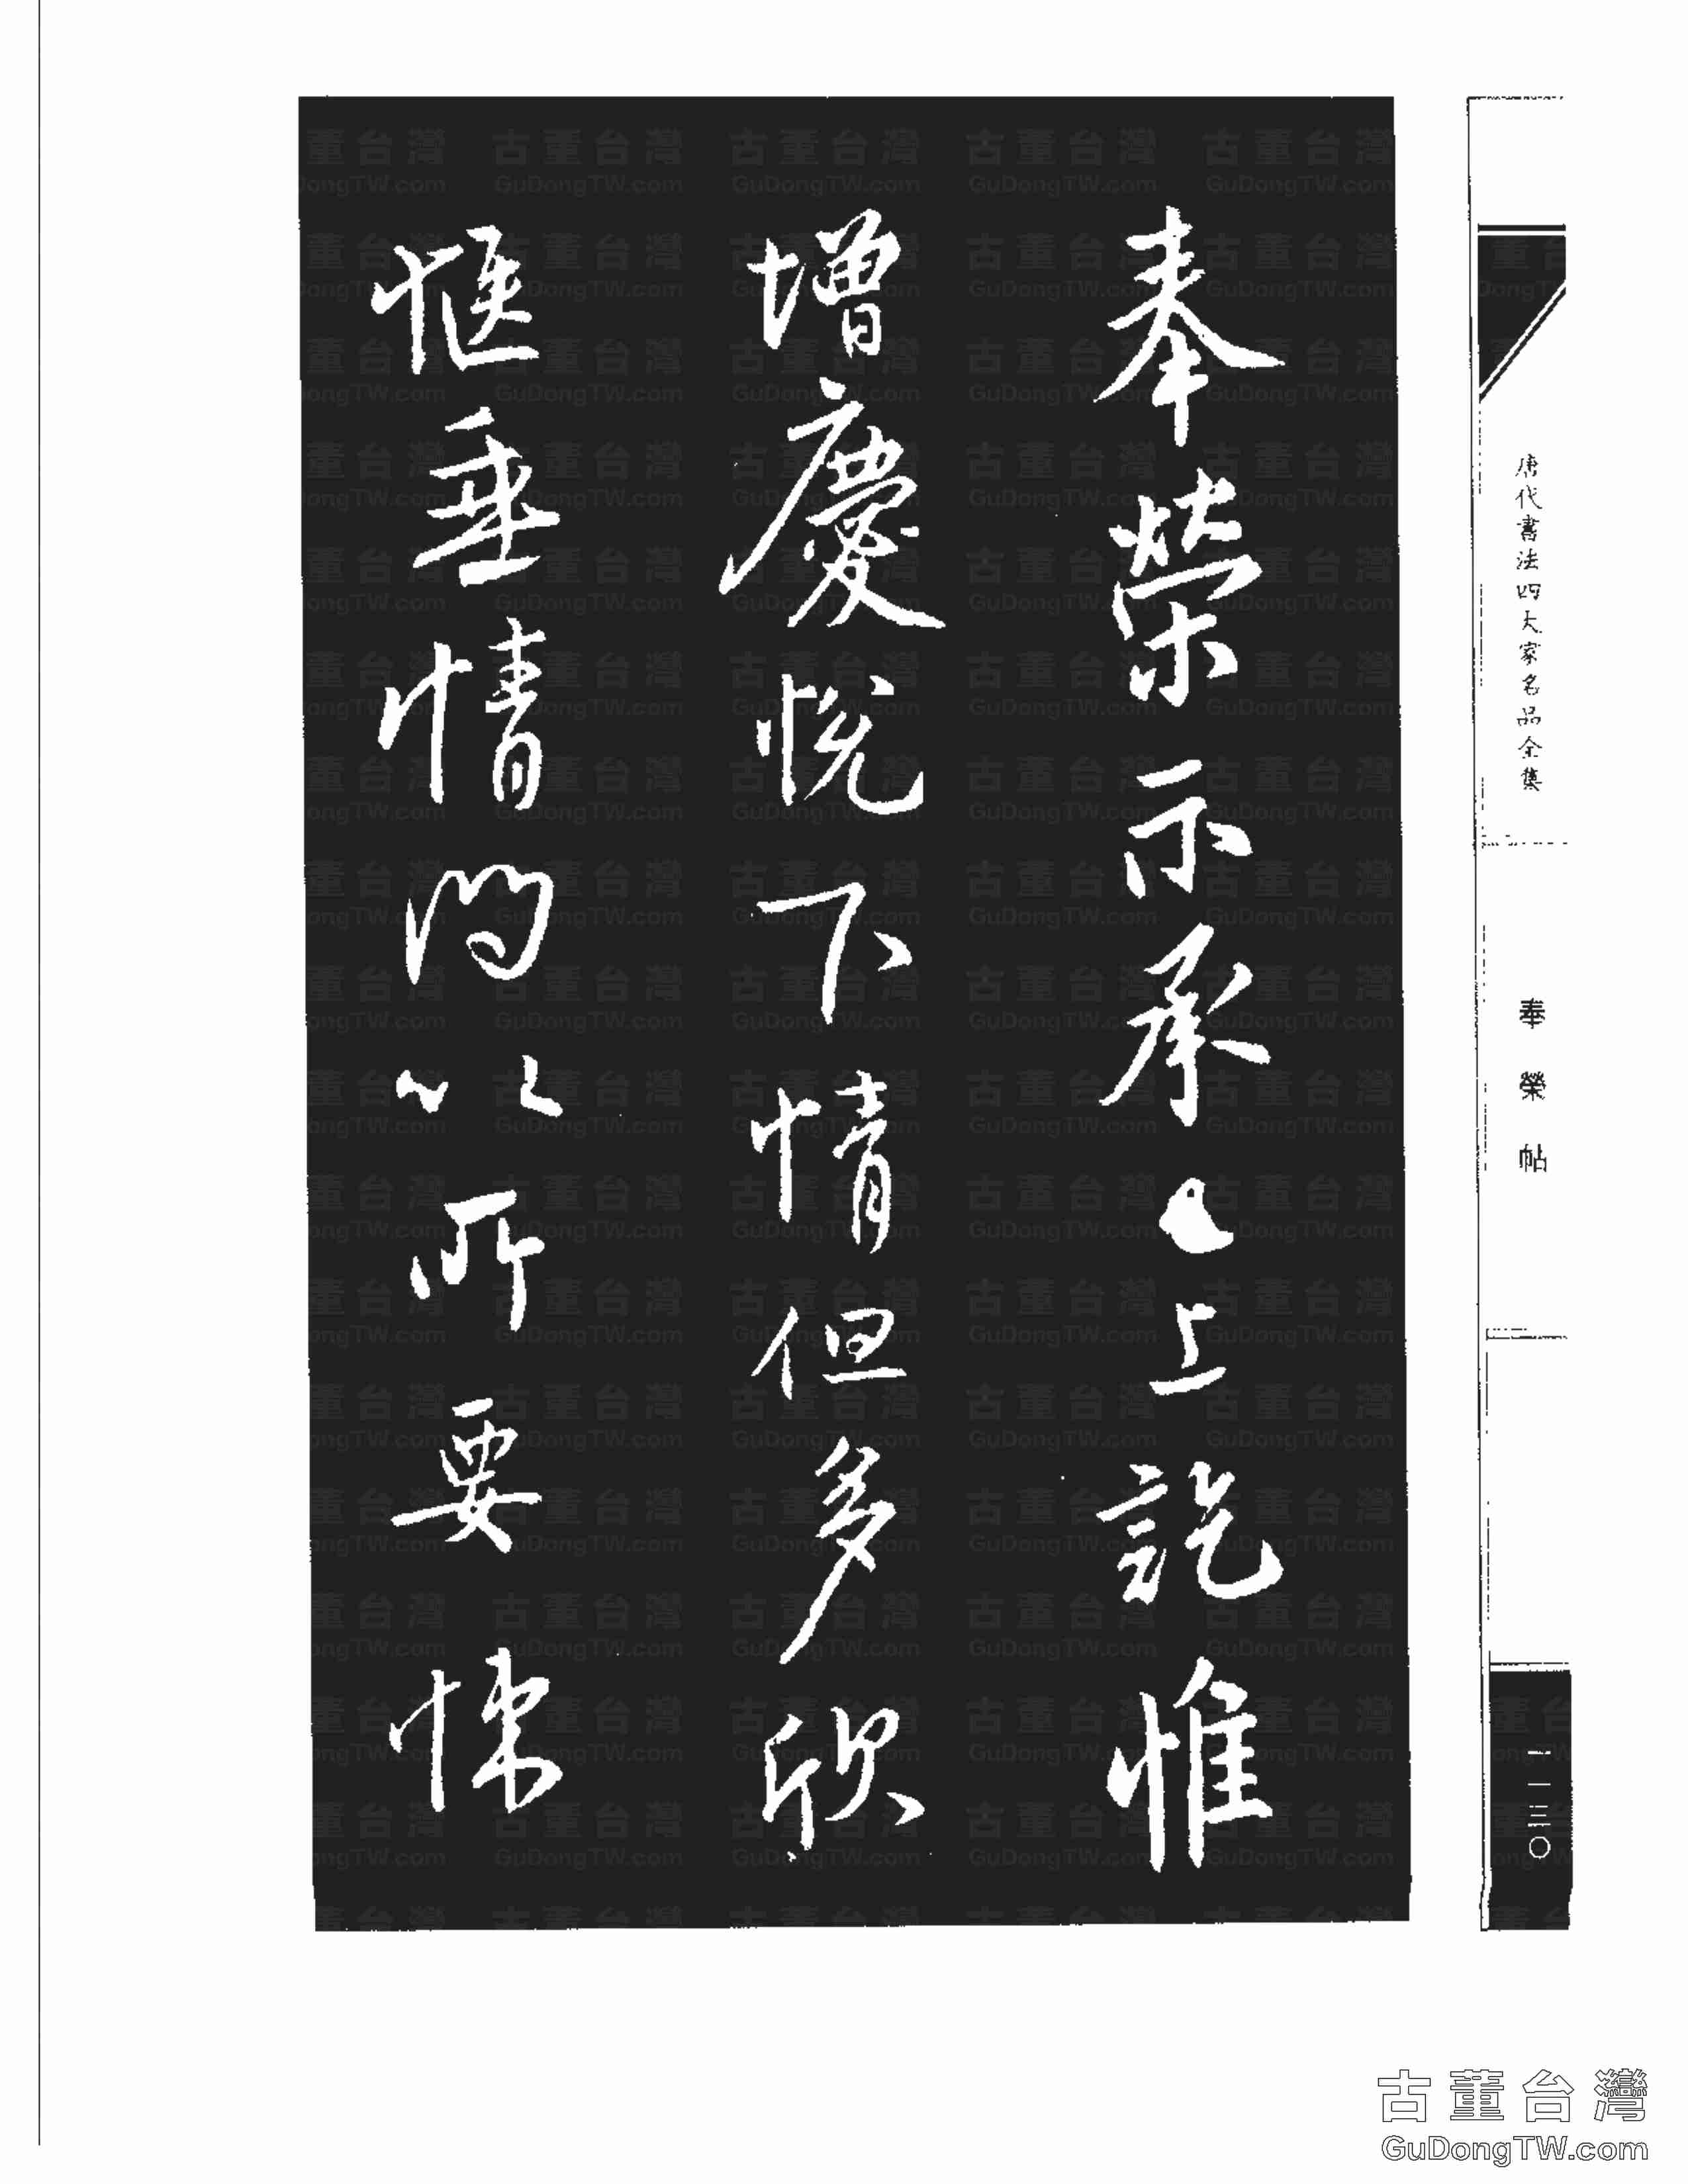 唐代書法四大家名品全集
奉榮帖
一一三〇
奉榮示承已上訖惟
增慶悅下情但多欣
愜垂情問以所要悚
古董台灣
GuDongTW.com